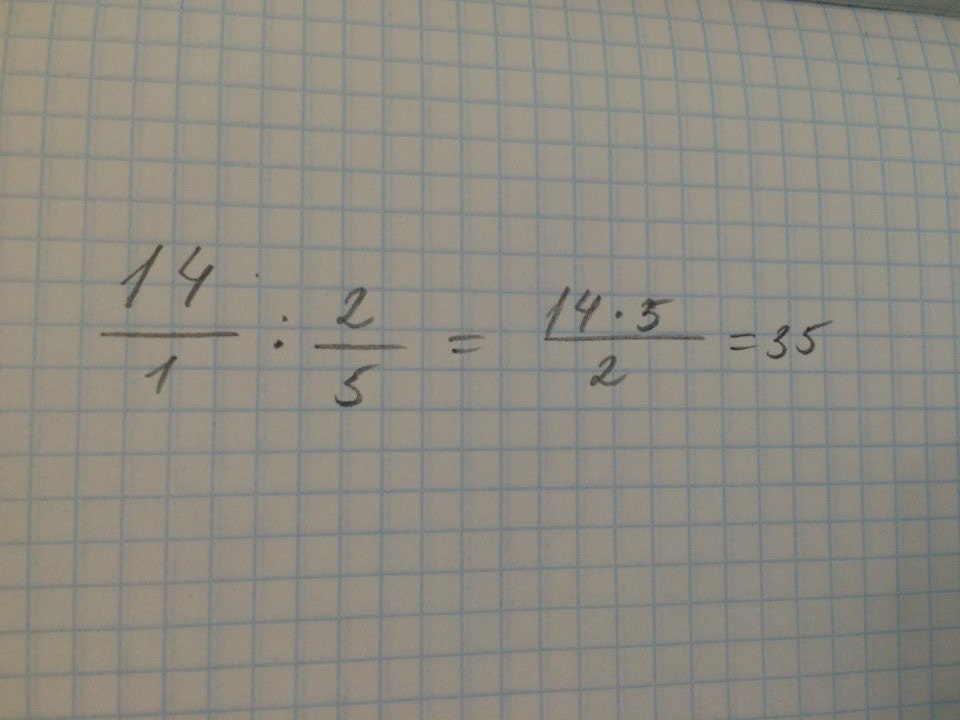 14/1 : 2/5 = 14·5/2 = 35